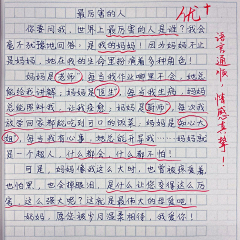 最厉害的人
你要问我，世界上最厉害的人是谁？我会
毫不犹豫地回答：是我的妈妈！因为妈妈不止
是妈妈，她在我的生命里扮演着多种角色！
妈妈是老师，每当我作业哪里不会，她总
能给我讲解；妈妈是医生，每当我生病，妈妈
总能照料我，让我痊愈；妈妈是厨师，每次我
放学回家都能吃到可口的饭菜；妈妈是知心大
姐，每当我有心事，她总能开导我……妈妈就
是一个超人，什么都会，什么都不怕！
可是，妈妈像我这么大时，也曾被保护着，
也怕黑，也会掉眼泪，是什么让您变得这么厉
害，这么强大？这源于最伟大的母爱吧！
妈妈，愿您被岁月温柔相待，我爱你！
优+
语言通顺，情感真挚！